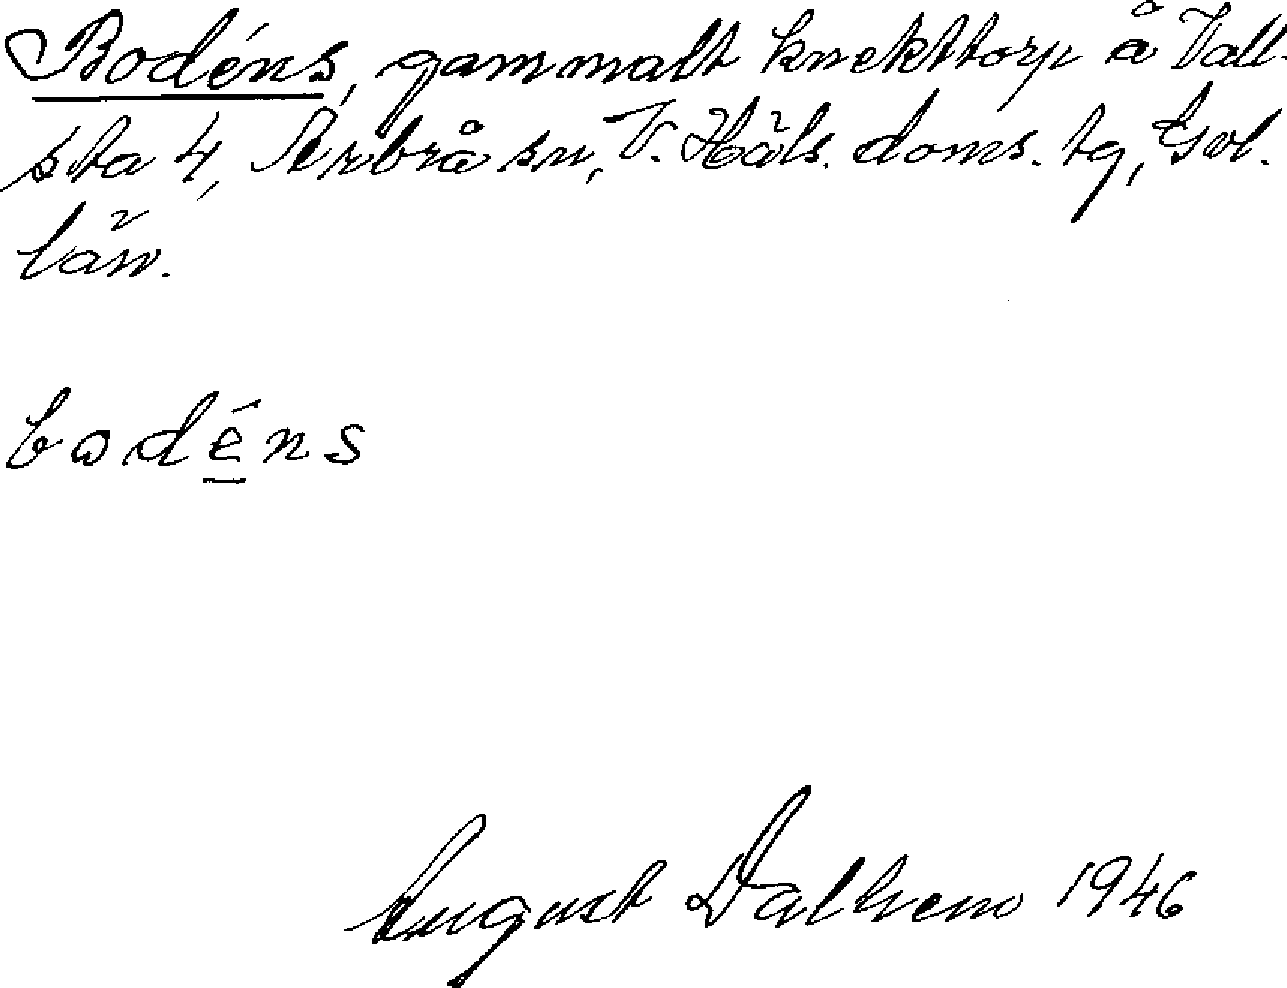 Bodéns, gammalt knekttorp å Vall-
sta 4, Arbrå sn, V. Häls. doms. tg, Gvl.
län.
bodéns
August Dalhem 1946